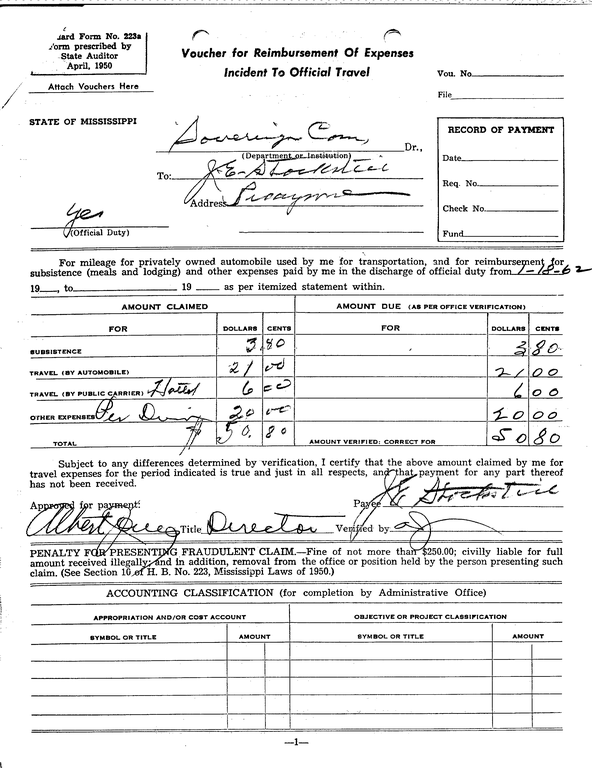 ard Form No. 223a
orm prescribed by
State Auditor
April, 1950
Attach Vouchers Here
Voucher for Reimbursement Of Expenses
Incident To Official Travel
Vou. No.
File
STATE OF MISSISSIPPI
Sovereign Com, Dr.,
(Department or Institution)
To: J. E. Stockstill
Address Picayune
yes
(Official Duty)
RECORD OF PAYMENT
Date
Req. No.
Check No.
Fund
For mileage for privately owned automobile used by me for transportation, and for reimbursement for
subsistence (meals and lodging) and other expenses paid by me in the discharge of official duty from 1-18-62
19 , to 19 as per itemized statement within.
AMOUNT CLAIMED AMOUNT DUE (AS PER OFFICE VERIFICATION)
FOR DOLLARS CENTS FOR DOLLARS CENTS
SUBSISTENCE 3.80 3 80
TRAVEL (BY AUTOMOBILE) 21 00 21 00
TRAVEL (BY PUBLIC CARRIER) Hotel 6 00 6 00
OTHER EXPENSES Per 20 00 20 00
TOTAL # 50. 80 AMOUNT VERIFIED: CORRECT FOR 50 80
Subject to any differences determined by verification, I certify that the above amount claimed by me for
travel expenses for the period indicated is true and just in all respects, and that payment for any part thereof
has not been received.
Approved for payment: Payee J E Stockstill
Albert Title Director Verified by
PENALTY FOR PRESENTING FRAUDULENT CLAIM.—Fine of not more than $250.00; civilly liable for full
amount received illegally; and in addition, removal from the office or position held by the person presenting such
claim. (See Section 10 of H. B. No. 223, Mississippi Laws of 1950.)
ACCOUNTING CLASSIFICATION (for completion by Administrative Office)
APPROPRIATION AND/OR COST ACCOUNT OBJECTIVE OR PROJECT CLASSIFICATION
SYMBOL OR TITLE AMOUNT SYMBOL OR TITLE AMOUNT
—1—